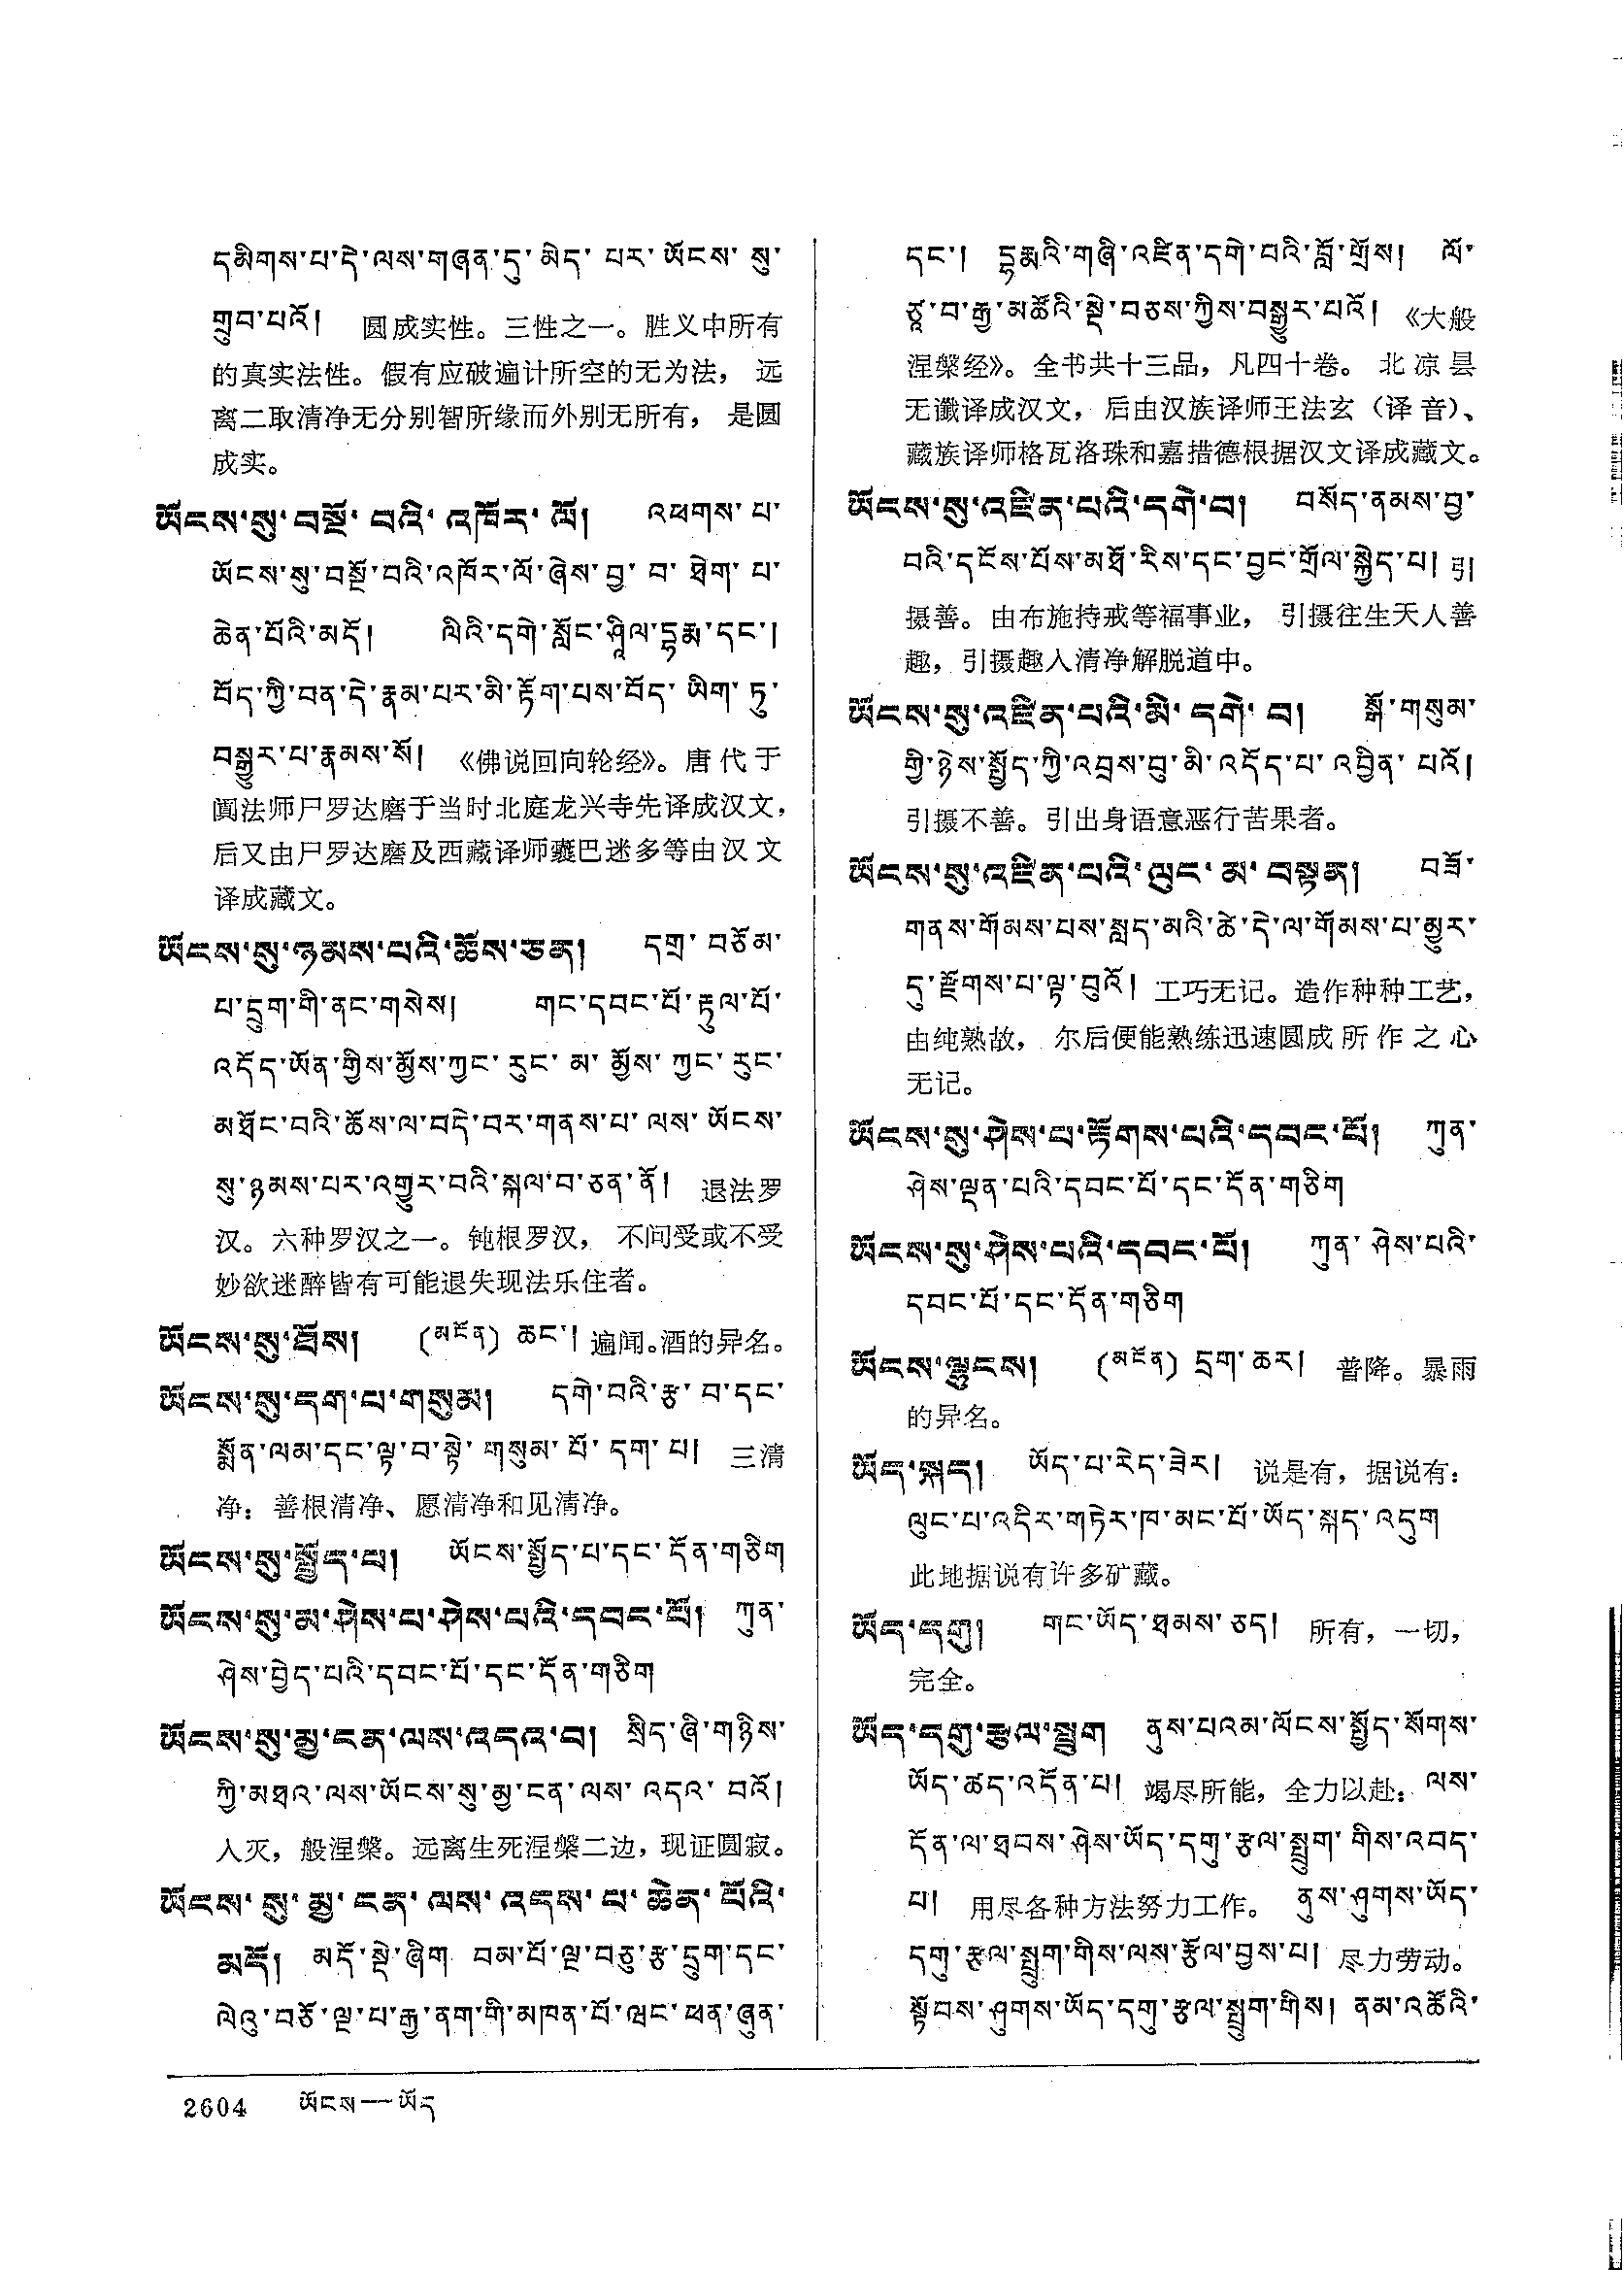 དམིགས་པ་དེ་ལས་གཞན་དུ་མེད་པར་ཡོངས་སུ་
གྲུབ་པའོ། 圆成实性。三性之一。胜义中所有
的真实法性。假有应破遍计所空的无为法，远
离二取清净无分别智所缘而外别无所有，是圆
成实。
ཡོངས་སུ་བསྔོ་བའི་འཁོར་ལོ། འཕགས་པ་
ཡོངས་སུ་བསྔོ་བའི་འཁོར་ལོ་ཞེས་བྱ་བ་ཐེག་པ་
ཆེན་པོའི་མདོ། ལིའི་དགེ་སློང་ཤཱིལ་དྷརྨ་དང་།
བོད་ཀྱི་བན་དེ་རྣམ་པར་མི་རྟོག་པས་བོད་ཡིག་ཏུ་
བསྒྱུར་པ་རྣམས་སོ། 《佛说回向轮经》。唐代于
阗法师尸罗达磨于当时北庭龙兴寺先译成汉文，
后又由尸罗达磨及西藏译师囊巴迷多等由汉文
译成藏文。
ཡོངས་སུ་ཉམས་པའི་ཆོས་ཅན། དགྲ་བཅོམ་
པ་དྲུག་གི་ནང་གསེས། གང་དབང་པོ་རྟུལ་པོ་
འདོད་ཡོན་གྱིས་མྱོས་ཀྱང་རུང་མ་མྱོས་ཀྱང་རུང་
མཐོང་བའི་ཆོས་ལ་བདེ་བར་གནས་པ་ལས་ཡོངས་
སུ་ཉམས་པར་འགྱུར་བའི་སྐལ་བ་ཅན་ནོ། 退法罗
汉。六种罗汉之一。钝根罗汉，不问受或不受
妙欲迷醉皆有可能退失现法乐住者。
ཡོངས་སུ་ཐོས། (མངོན) ཆང་། 遍闻。酒的异名。
ཡོངས་སུ་དག་པ་གསུམ། དགེ་བའི་རྩ་བ་དང་
སྨོན་ལམ་དང་ལྟ་བ་སྟེ་གསུམ་པོ་དག་པ། 三清
净：善根清净、愿清净和见清净。
ཡོངས་སུ་སྤྱོད་པ། ཡོངས་སྤྱོད་པ་དང་དོན་གཅིག
ཡོངས་སུ་མ་ཤེས་པ་ཤེས་པའི་དབང་པོ། ཀུན་
ཤེས་བྱེད་པའི་དབང་པོ་དང་དོན་གཅིག
ཡོངས་སུ་མྱ་ངན་ལས་འདའ་བ། སྲིད་ཞི་གཉིས་
ཀྱི་མཐའ་ལས་ཡོངས་སུ་མྱ་ངན་ལས་འདའ་བའོ།
入灭，般涅槃。远离生死涅槃二边，现证圆寂。
ཡོངས་སུ་མྱ་ངན་ལས་འདས་པ་ཆེན་པོའི་
མདོ། མདོ་སྡེ་ཞིག བམ་པོ་ལྔ་བཅུ་རྩ་དྲུག་དང་
ལེའུ་བཅོ་ལྔ་པ་རྒྱ་ནག་གི་མཁན་པོ་ཝང་ཕན་ཞུན་
དང་། དྷརྨའི་གཞི་འཛིན་དགེ་བའི་བློ་གྲོས། ལོ་
ཙཱ་བ་རྒྱ་མཚོའི་སྡེ་བཅས་ཀྱིས་བསྒྱུར་པའོ། 《大般
涅槃经》。全书共十三品，凡四十卷。北凉昙
无谶译成汉文，后由汉族译师王法玄（译音）、
藏族译师格瓦洛珠和嘉措德根据汉文译成藏文。
ཡོངས་སུ་འཛིན་པའི་དགེ་བ། བསོད་ནམས་བྱ་
བའི་དངོས་པོས་མཐོ་རིས་དང་བྱང་གྲོལ་སྐྱེད་པ། 引
摄善。由布施持戒等福事业，引摄往生天人善
趣，引摄趣入清净解脱道中。
ཡོངས་སུ་འཛིན་པའི་མི་དགེ་བ། སྒོ་གསུམ་
གྱི་ཉེས་སྤྱོད་ཀྱི་འབྲས་བུ་མི་འདོད་པ་འབྱིན་པའོ།
引摄不善。引出身语意恶行苦果者。
ཡོངས་སུ་འཛིན་པའི་ལུང་མ་བསྟན། བཟོ་
གནས་གོམས་པས་སླད་མའི་ཚེ་དེ་ལ་གོམས་པ་མྱུར་
དུ་རྫོགས་པ་ལྟ་བུའོ། 工巧无记。造作种种工艺，
由纯熟故，尔后便能熟练迅速圆成所作之心
无记。
ཡོངས་སུ་ཤེས་པ་རྟོགས་པའི་དབང་པོ། ཀུན་
ཤེས་ལྡན་པའི་དབང་པོ་དང་དོན་གཅིག
ཡོངས་སུ་ཤེས་པའི་དབང་པོ། ཀུན་ཤེས་པའི་
དབང་པོ་དང་དོན་གཅིག
ཡོངས་ལྷུངས། (མངོན) དྲག་ཆར། 普降。暴雨
的异名。
ཡོད་སྐད། ཡོད་པ་རེད་ཟེར། 说是有，据说有：
ལུང་པ་འདིར་གཏེར་ཁ་མང་པོ་ཡོད་སྐད་འདུག
此地据说有许多矿藏。
ཡོད་དགུ། གང་ཡོད་ཐམས་ཅད། 所有，一切，
完全。
ཡོད་དགུ་རྩལ་སྤྲུག ནུས་པའམ་ལོངས་སྤྱོད་སོགས་
ཡོད་ཚད་འདོན་པ། 竭尽所能，全力以赴：ལས་
དོན་ལ་ཐབས་ཤེས་ཡོད་དགུ་རྩལ་སྤྲུག་གིས་འབད་
པ། 用尽各种方法努力工作。 ནུས་ཤུགས་ཡོད་
དགུ་རྩལ་སྤྲུག་གིས་ལས་རྩོལ་བྱས་པ། 尽力劳动。
སྟོབས་ཤུགས་ཡོད་དགུ་རྩལ་སྤྲུག་གིས། ནམ་འཚོའི་
2604 ཡོངས—ཡོད